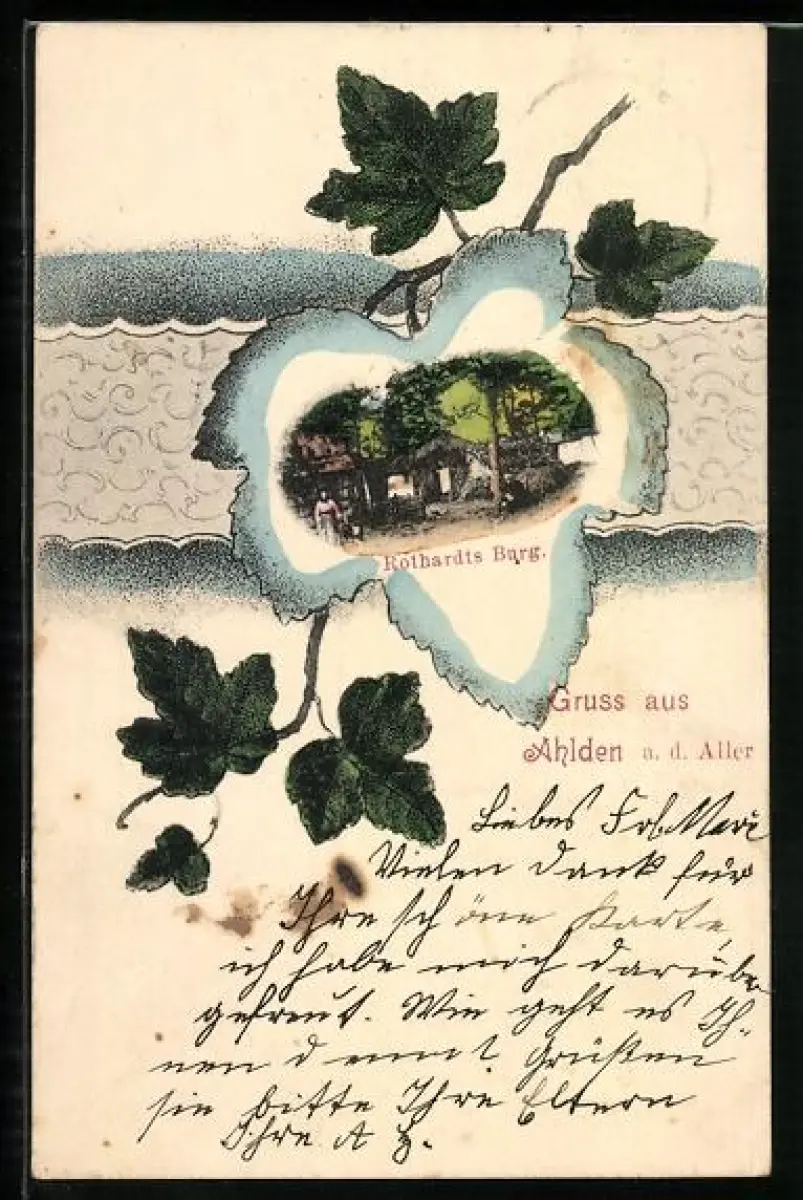 Rothardts Burg.
Gruss aus
Ahlden a. d. Aller
Liebes Frl. Marie
Vielen Dank für
Ihre schöne Karte,
ich habe mich darüber
gefreut. Wie geht es Ih-
nen denn? Grüßen
sie bitte Ihre Eltern
Ihre A H.